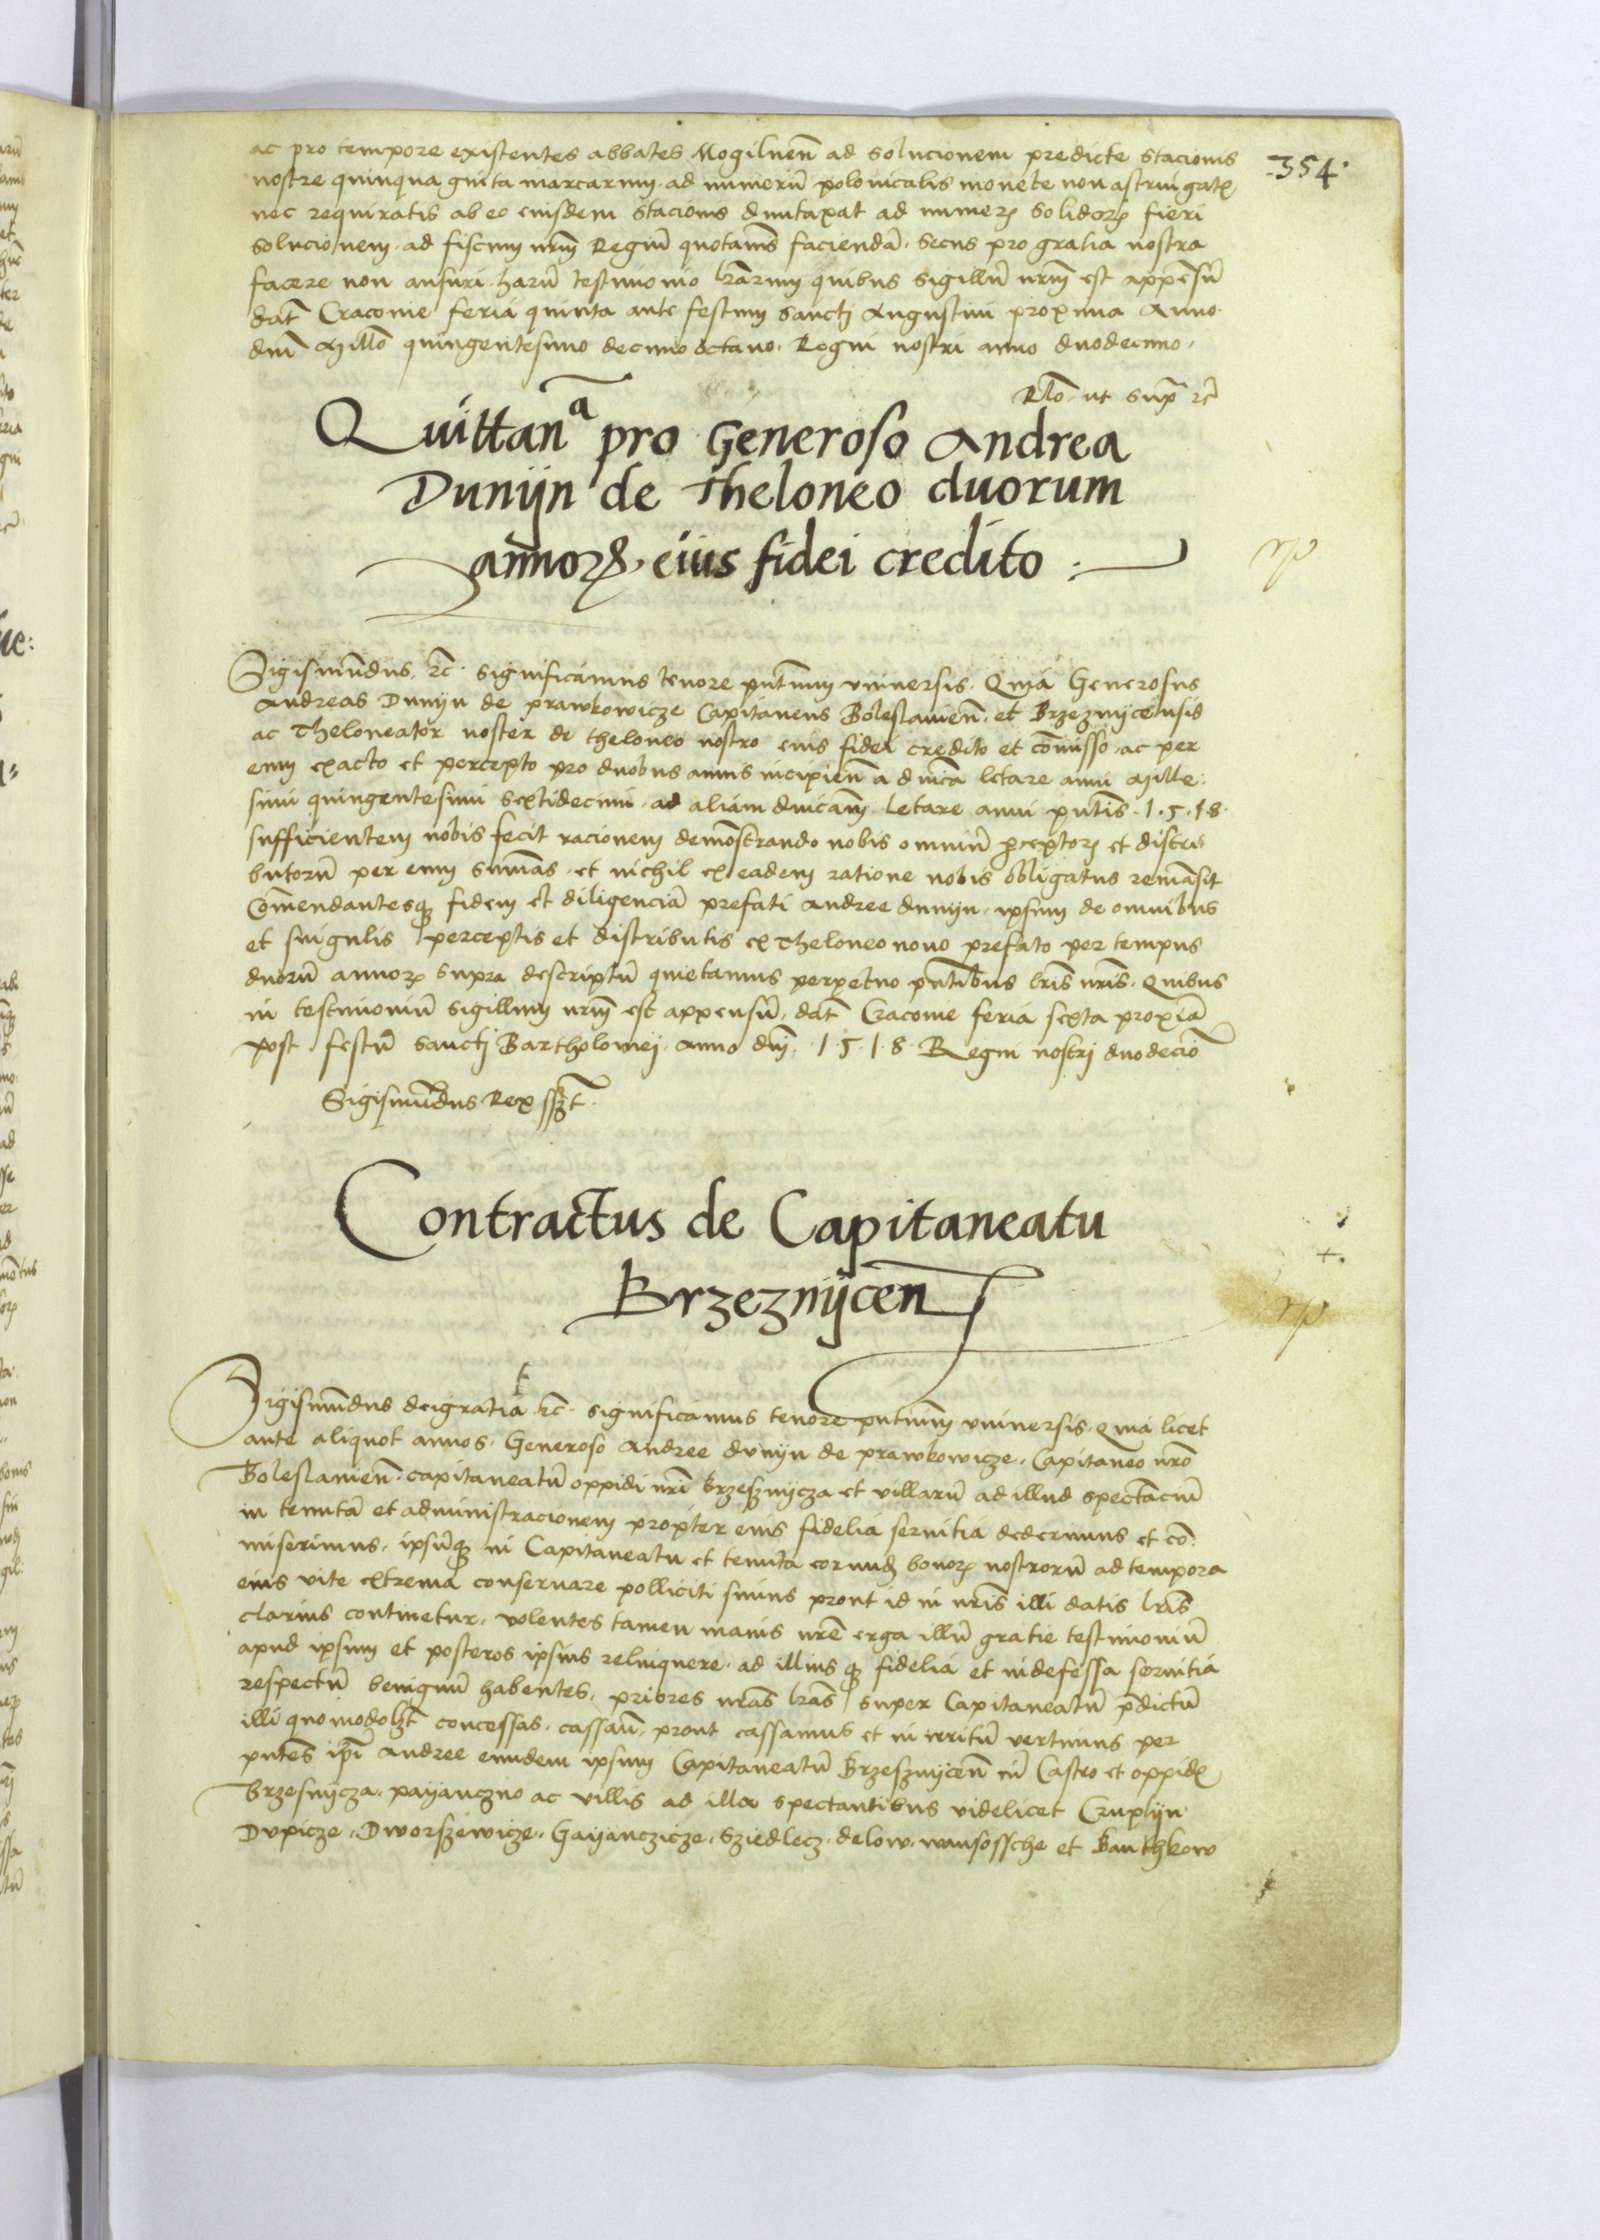 354
ac pro tempore existentes abbates Mogilnen̄ ad solucionem predicte stacionis
nostre quinquaginta marcarum ad numerū polonicalis monete non astringatꝭ
nec requiratis ab eo eiusdem stacionis dumtaxat ad numerꝝ solidorꝝ fieri
solucionem ad fiscum nr̄m Regiū quotanīs faciendā. Secus pro gratia nostra
facere non ausuri. harū testimonio lr̄arum quibus sigillū nr̄m est appensū
dat̄ Cracovie feria quinta ante festum sanctj Augustini proxima Anno
dnī Millō quingentesimo decimo octavo. Regni nostri anno duodecimo.
Rlō ut supᷓ ꝛc̄
Quittanᵃ pro Generoso Andrea
Dunijn de Theloneo duorum
annorꝝ eius fidei credito :
Sigismūdus ꝛc̄. significamus tenore pñtium universis. Quia Generosus
Andreas Dunijn de prawkowicze Capitaneus Boleslavien̄. et Brzeznijcensis
ac Theloneator noster de theloneo nostro eius fidei credito et cōmisso. ac per
eum exacto et percepto pro duobus annis incipien̄ a dnīca letare anni Mille:
simi quingentesimi sextidecimi. ad aliam dnicam̄ letare anni pñtis. 1.5.18.
sufficientem nobis fecit racionem demōstrando nobis omniū ꝑceptorꝝ et distri
butorū per eum sum̄as. et nichil ex eadem ratione nobis obligatus remāsit
Cōmendantesqꝫ fidem et diligenciā prefati Andree dunijn. ipsum de omnibus
et singulis perceptis et distributis ex Theloneo novo prefato per tempus
duorū annorꝝ supra descriptū quietamus perpetuo pñtibus lr̄is nr̄is. Quibus
in testimoniū sigillum nr̄m est appensū. dat̄ Cracovie feria sexta proxīa
post festū sanctj Bartholomej. Anno dnī. 1.5.1.8. Regni nostrj duodecīo
Sigismūdus Rex sszt̄.
Contractus de Capitaneatu
Brzeznijcen̄
Sigismūdus dei gratia ꝛc̄. significamus tenore pñtium̄ universis. Quia licet
ante aliquot annos. Generoso Andree dunijn de prawkowicze. Capitaneo nr̄o
Boleslavien̄. capitaneatū oppidi nr̄i Brzesznijcza et villarū ad illud spectanciū
in tenutā et administracionem propter eius fidelia servitia dederimus et cō:
miserimus. ipsūqꝫ in Capitaneatu et tenuta eorundꝫ bonorꝝ nostrorū ad tempora
eius vite extrema conservare polliciti sumus prout id in nr̄is illi datis lr̄is
clarius continetur. volentes tamen maius nr̄e erga illū gratie testimoniū
apud ipsum et posteros ipsius relinquere. ad illius qꝫ fidelia et indefessa servitia
respectū benignū habentes. priores nr̄as lr̄as super Capitaneatū p̄dictū
illi quomodolꝫt̄ concessas. cassam̄. prout cassamus et in irritū vertimus per
pñtes ip̄i Andree eundem ipsum Capitaneatū Brzesznijcen̄ cū Castro et oppidꝭ
Brzesnijcza. payanczno ac villis ad illa spectantibus videlicet Czuplijn
Dvpicze. Dworszewicze. Gayanczicze. Sziedlecz. delow. wansossche et Banthkow